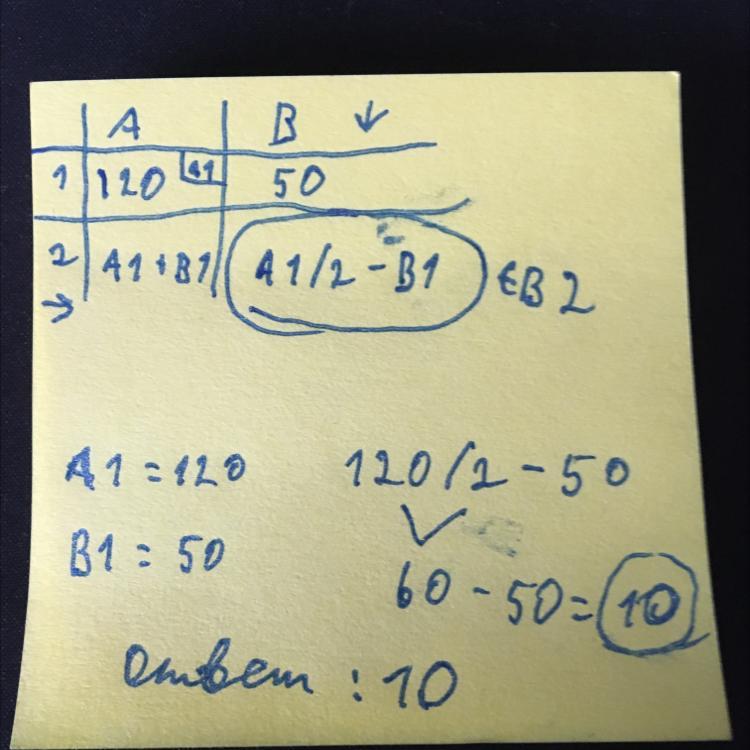 A B ↓
1 120 A1 50
2 A1+B1 A1/2-B1 ←B2
→
A1=120 120/2-50
B1=50
60-50=10
ответ:10